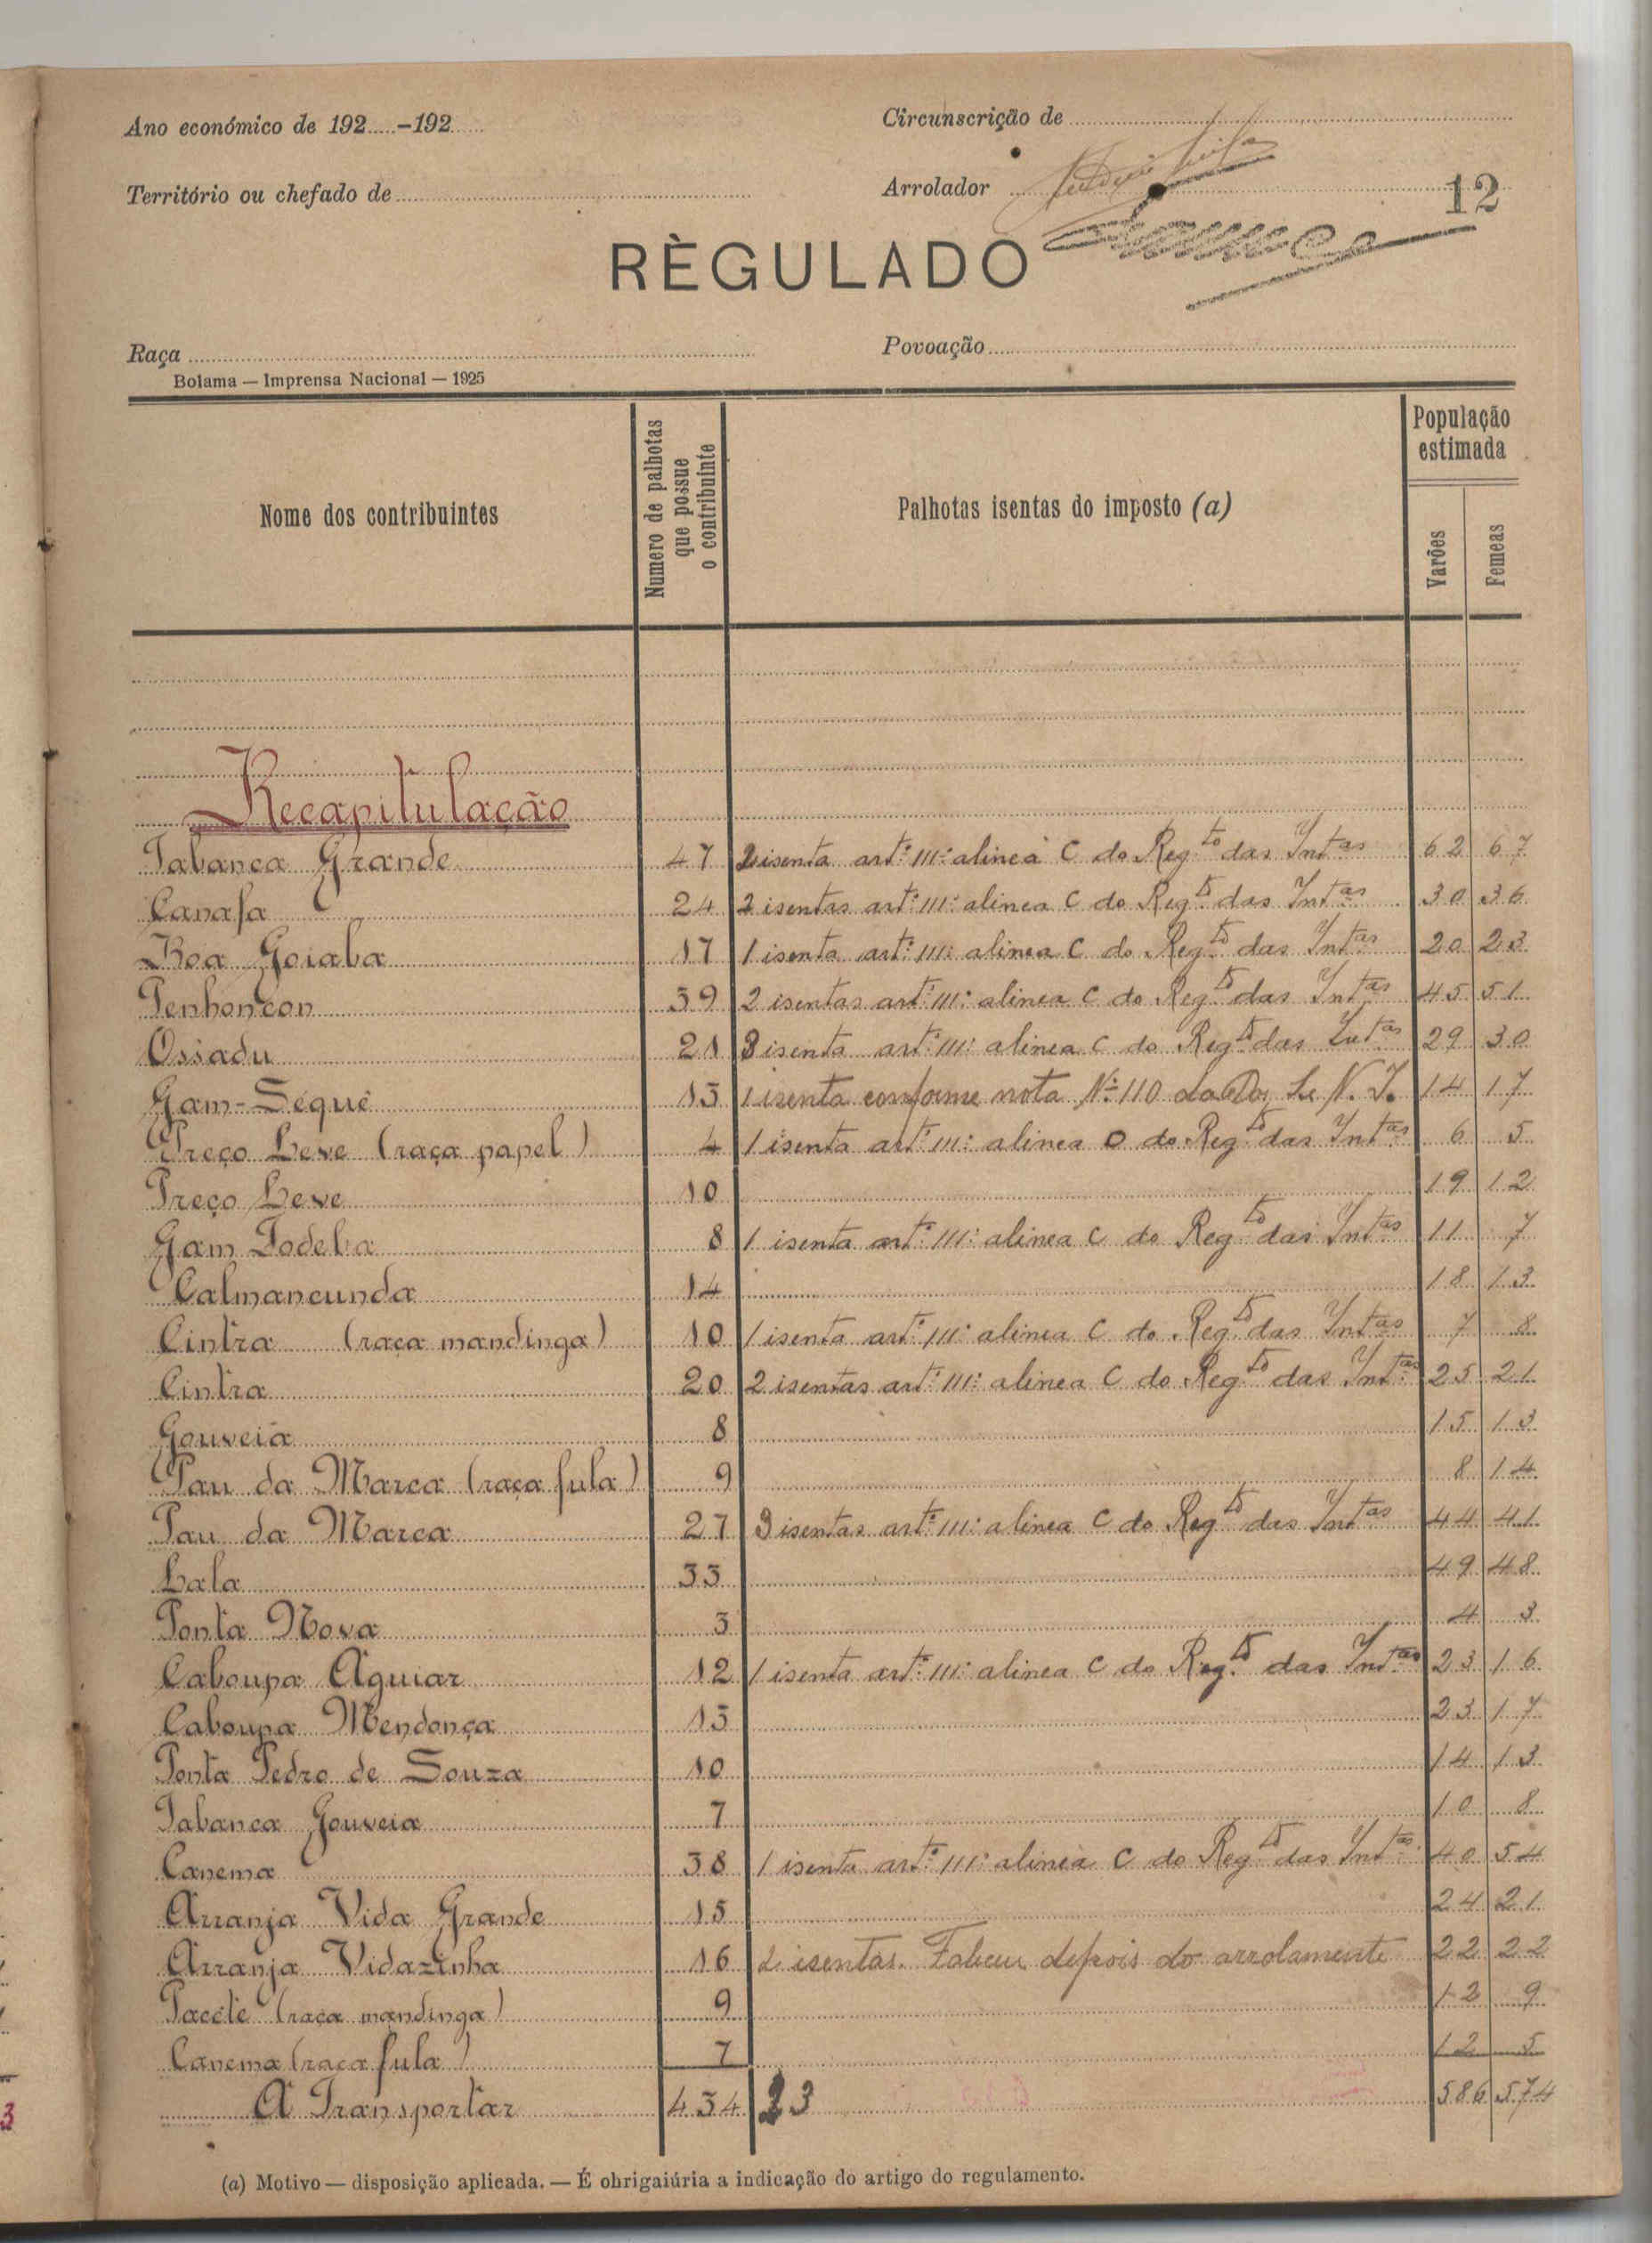 Ano económico de 192.....-192.....
Circunscrição de
Território ou chefado de
Arrolador
12
RÈGULADO
Raça
Povoação
Bolama — Imprensa Nacional — 1925
Nome dos contribuintes
Numero de palhotas que possue o contribuinte
Palhotas isentas do imposto (a)
População estimada
Varões
Femeas
Recapitulação
Tabanca Grande 47 2 isenta artº 111º alinea C do Regto das Intas 62 67
Canafa 24 2 isentas artº 111º alinea C do Regto das Intas 30 36
Boa Goiaba 17 1 isenta artº 111º alinea C do Regto das Intas 20 23
Penhoncon 39 2 isentas artº 111º alinea C do Regto das Intas 45 51
Ossadu 21 3 isenta artº 111º alinea C do Regto das Intas 29 30
Gam-Séquê 13 1 isenta conforme nota Nº 110 da N. I. 14 17
Preço Leve (raça papel) 4 1 isenta artº 111º alinea D do Regto das Intas 6 5
Preço Leve 10 19 12
Gam Todeba 8 1 isenta artº 111º alinea C do Regto das Intas 11 7
Calmancunda 14 18 13
Cintra (raça mandinga) 10 1 isenta artº 111º alinea C do Regto das Intas 7 8
Cintra 20 2 isentas artº 111º alinea C do Regto das Intas 25 21
Gouveia 8 15 13
Pau da Marca (raça fula) 9 8 14
Pau da Marca 27 3 isentas artº 111º alinea C do Regto das Intas 44 41
Lala 33 49 48
Ponta Nova 3 4 3
Caboupa Aguiar 12 1 isenta artº 111º alinea C do Regto das Intas 23 16
Caboupa Mendonça 13 23 17
Ponta Pedro de Souza 10 14 13
Tabanca Gouveia 7 10 8
Canema 38 1 isenta artº 111º alinea C do Regto das Intas 40 54
Arranja Vida Grande 15 24 21
Arranja Vidazinha 16 2 isentas. Faliceu depois do arrolamento 22 22
Pacéte (raça mandinga) 9 12 9
Canema (raça fula) 7 12 5
A Transportar 434 23 586 574
(a) Motivo — disposição aplicada. — É obrigaiúria a indicação do artigo do regulamento.
3